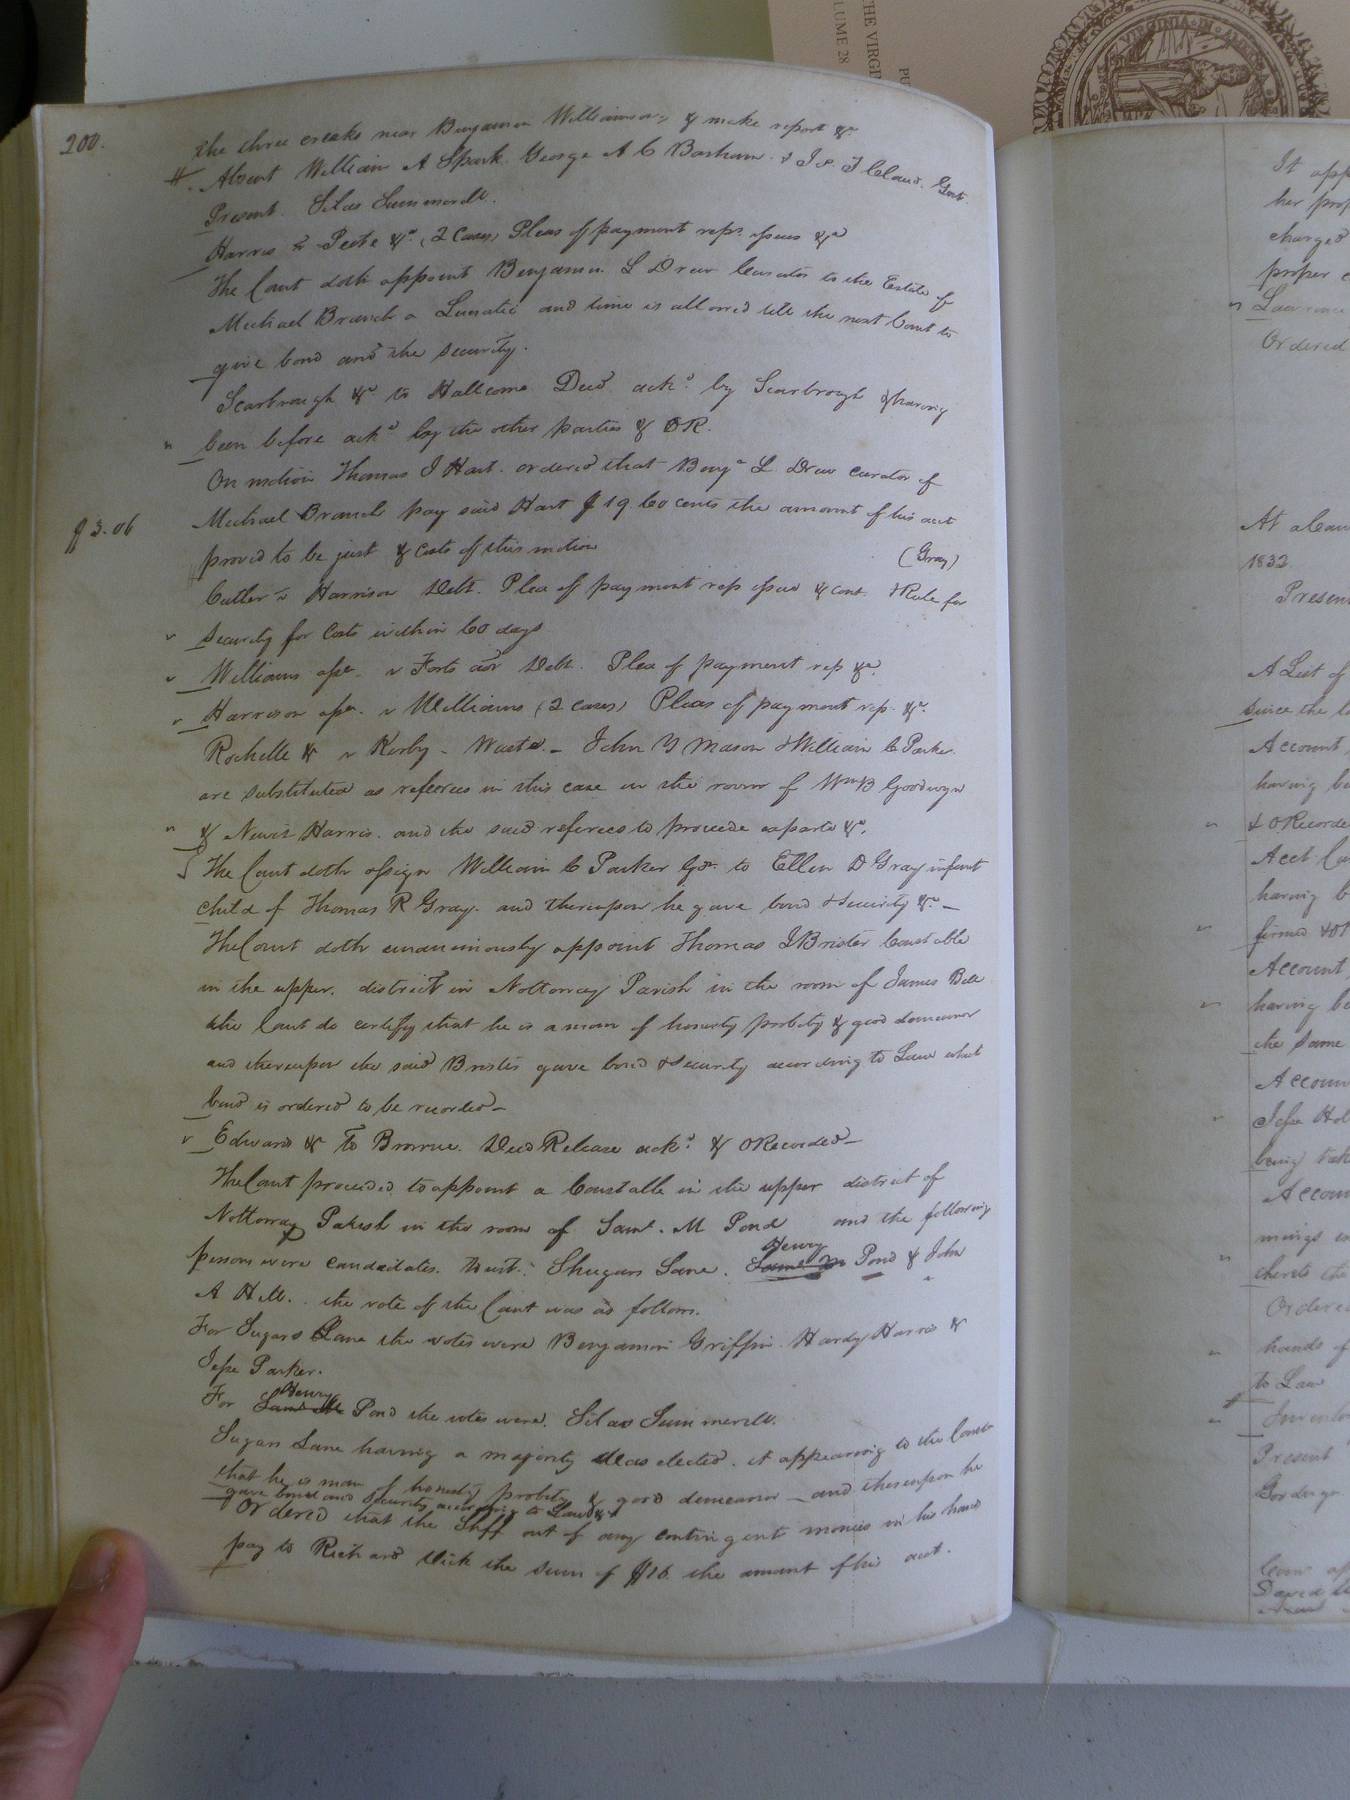 200.
the three creeks near Benjamin Williamson, & make report &c
Absent William A Spark. George A C Barham. & J. T Claud. Gent.
Present. Silas Summerell.
Harris v Peete &c (2 cases) Pleas of payment repn issues &c
The Court doth appoint Benjamin L Drew Curator to the Estate of
Michael Branch a Lunatic and time is allowed till the next Court to
give bond and the security.
Scarbrough &c to Hallcome Deed ackd by Scarbrough & having
been before ackd by the other parties & OR.
On motion Thomas J Hart. ordered that Benja L Drew curator of
Michael Branch pay said Hart $19.60 cents the amount of his acct
$3.06
proved to be just & costs of this motion
(Gray)
Cutler v Harrison Debt. Plea of payment rep issue & cont. & Rule for
security for Costs within 60 days
Williams v Forts Debt. Plea of payment rep &c
Harrison v Williams (2 cases) Pleas of payment rep. &c
Rochelle & v Kerby - Waste - John Y Mason & William C Parker
are substituted as referees in this case in the room of Wm B Goodwyn
& Newit Harris. and the said referees to proceede exparte &c.
The Court doth assign William C Parker Gdn to Ellen D Gray infant
child of Thomas R Gray. and thereupon he gave bond & security &c -
The Court doth unanimously appoint Thomas J Brister Constable
in the upper. district in Nottoway Parish in the room of James Bell
& the Court do certify that he is a man of honesty probity & good demeanor
and thereupon the said Brister gave bond & security according to Law which
bond is ordered to be recorded -
Edwards & To Browne. Deed Release ackd & O Recorded -
The Court proceeded to appoint a Constable in the upper district of
Nottoway Parish in the room of Saml. M Pond and the following
Henry
persons were candidates. to wit: Shugars Lane. Saml M Pond & John
A Hill. the vote of the Court was as follows.
For Sugars Lane the votes were Benjamin Griffin. Hardy Harris &
Jesse Parker.
Henry
For Saml M Pond the votes were. Silas Summerell.
Sugars Lane having a majority was elected. it appearing to the Court
that he is man of honesty probity & good demeanor - and thereupon he
gave bond and security according to Law &c
Ordered that the Shff out of any contingent monies in his hand
pay to Richard Dick the sum of $16 the amount of his acct.
THE VIRGI
VOLUME 28
PU
VIRGINIA IN AM
It app
her prop
charged
proper c
Lawrence
Ordered
At a Cou
1832
Present
A List of
since the l
Account
having be
& O Recorde
Acct Cu
having b
firmed & OR
Account
having be
the same
Accoun
Jesse Hol
being tak
Accoun
mings
thereto the
Ordered
hands of
to Law
Invento
Present